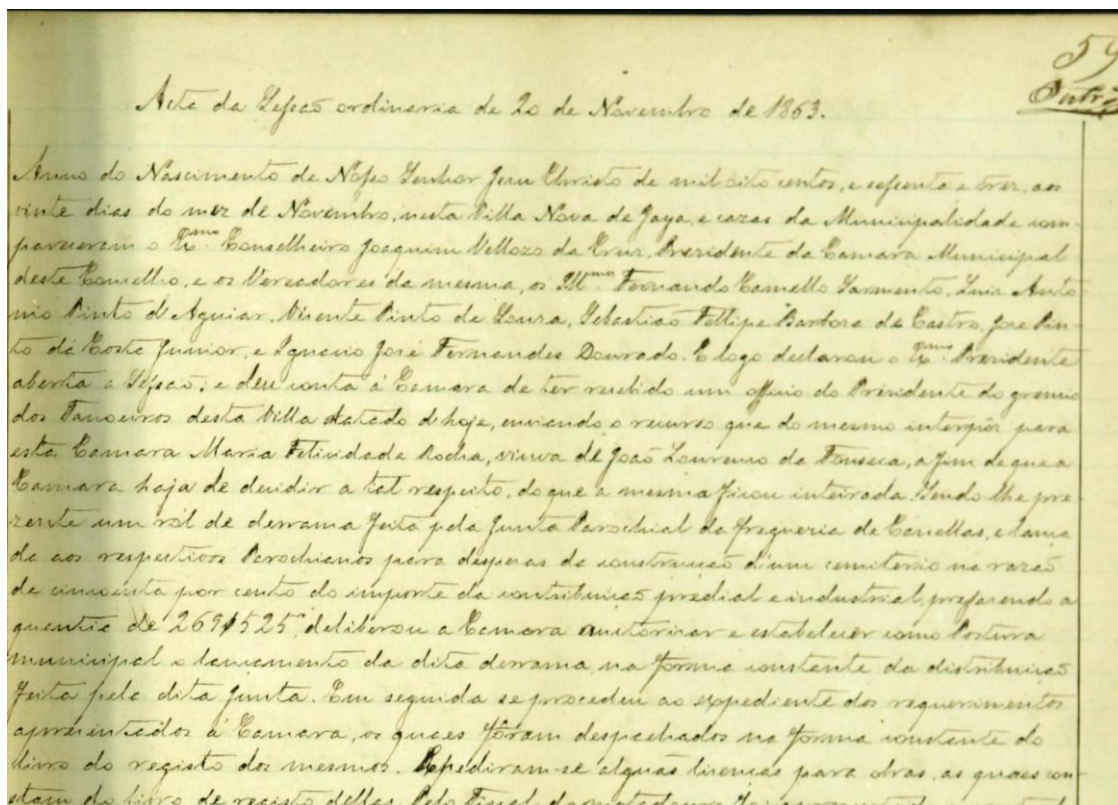 59
Acta da Sessaõ ordinaria de 20 de Novembro de 1863.
Anno do Nascimento de Nosso Senhor Jesu Christo de mil oito centos, e sessenta e trez, aos
vinte dias do mez de Novembro, nesta Villa Nova de Gaya, e cazas da Municipalidade com-
pareceram o Ex.mo Conselheiro Joaquim Vellozo da Cruz, Prezidente da Camara Municipal
deste Concelho, e os Vereadores da mesma, os Ill.mos Fernando Camello Sarmento, Luiz Anto-
nio Pinto d'Aguiar, Vicente Pinto de Soura, Sebastiaõ Fellipe Barboza de Castro, José Pin-
to da Costa Junior, e Ignacio José Fernandes Dourado. E logo declarou o Ex.mo Prezidente
aberta a Sessaõ; e deu conta á Camara de ter recebido um officio do Prezidente do gremio
dos Tanoeiros desta Villa datado d'hoje, enviando o recurso que do mesmo interpôz para
esta Camara Maria Felicidade Rocha, viuva de Joaõ Lourenço da Fonseca, a fim de que a
Camara haja de decidir a tal respeito, do que a mesma ficou inteirada. Sendo-lhe pre-
zente um ról de derrama feita pela Junta Parochial da freguezia de Canellas, e lança-
da aos respectivos Parochianos para despezas da construcçaõ d'um cemiterio na razaõ
de cincoenta por cento do importe da contribuiçaõ predial e industrial, prefazendo a
quantia de 269$525 deliberou a Camara auctorizar e estabelecer como Postura
municipal o lançamento da dita derrama, na forma constante da distribuiçaõ
feita pela dita Junta. Em seguida se procedeu ao expediente dos requerimentos
aprezentados á Camara, os quaes fôram despachados na forma constante do
livro do registo dos mesmos. Expediram-se algũas licenças para obras, as quaes con-
stam do livro de registo dellas. Pelo Fiscal do matadouro foi